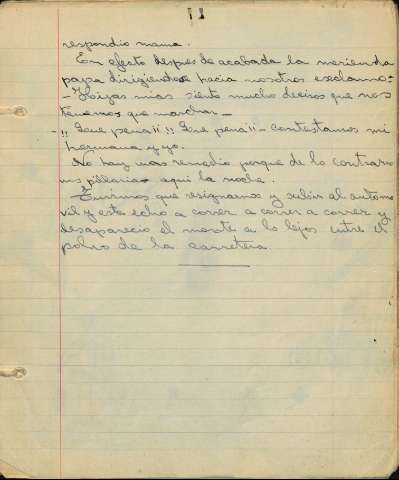 11
respondio mama.
En efecto despues de acabada la merienda
papa dirigiendose hacia nosotros exclamo:-
- Hijas mias siento mucho deciros que nos
tenemos que marchar -
- ¡¡ Que pena!! ¡¡ Que pena!! - contestamos mi
hermana y yo.
No hay mas remedio porque de lo contrario
nos pillaria aqui la noche.
Tuvimos que resignarnos y subir al automo
vil y este echo a correr a correr a correr y
desaparecio el monte a lo lejos entre el
polvo de la carretera